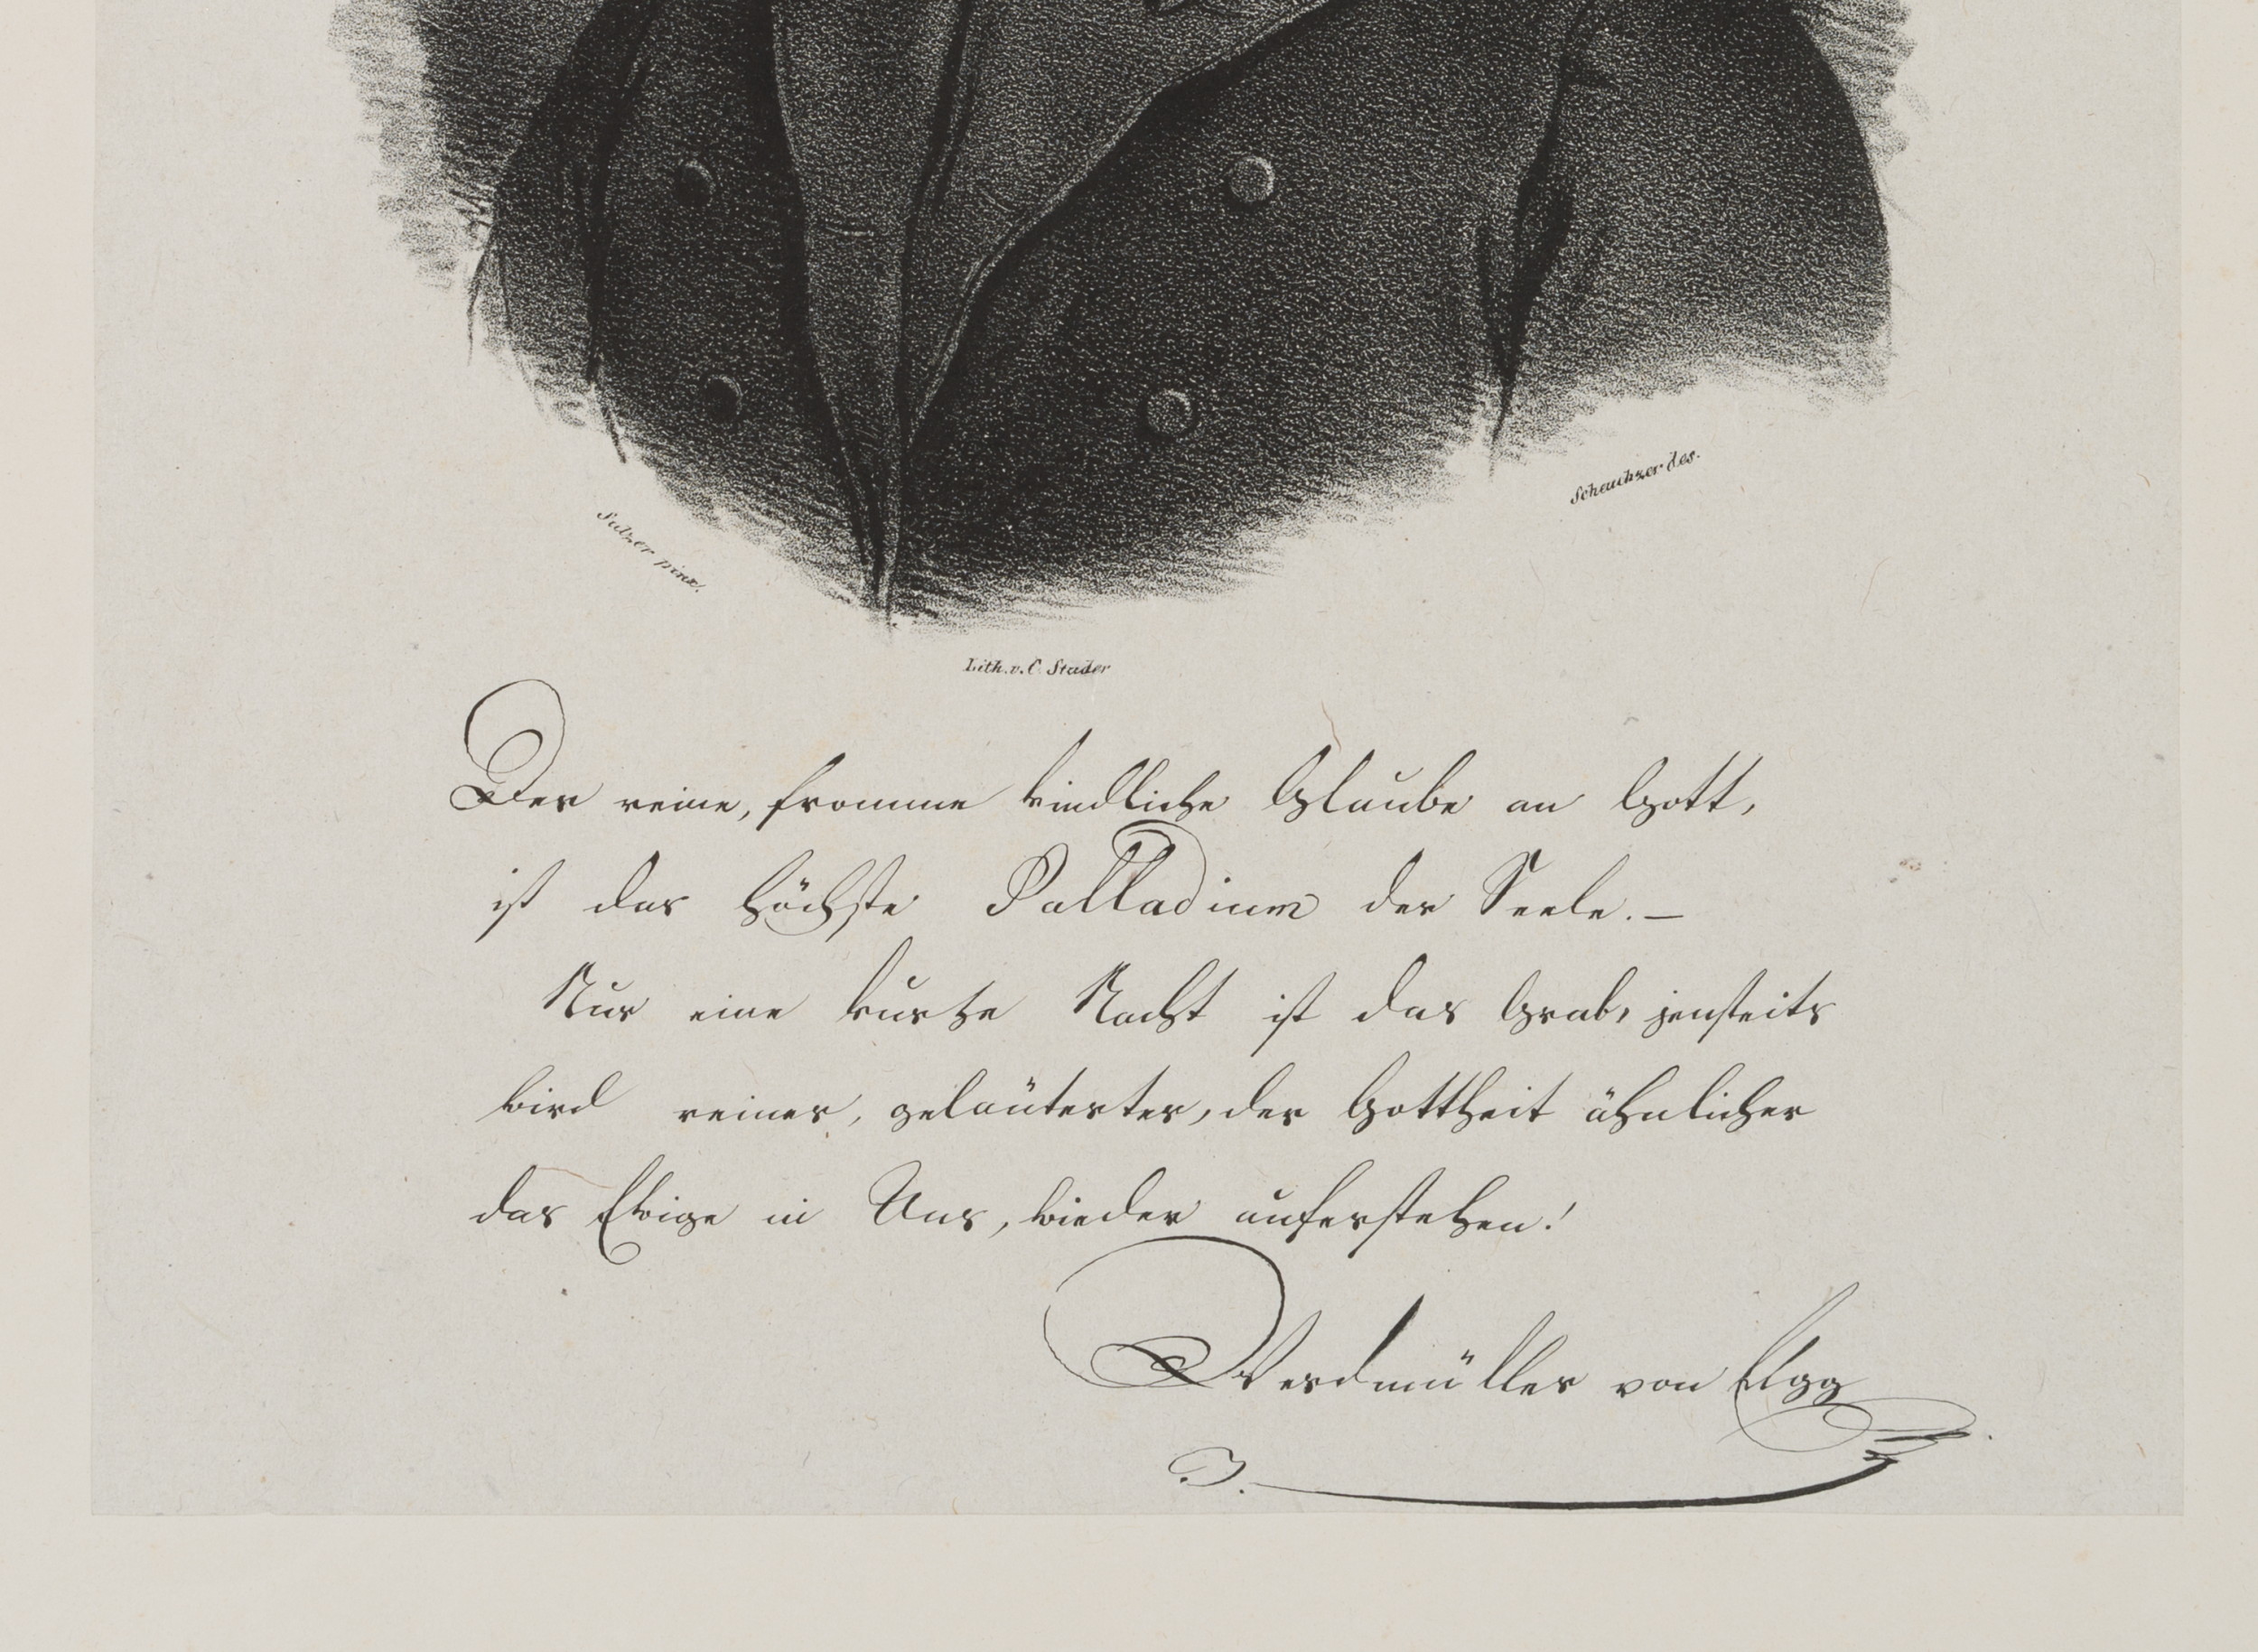 Sulzer pinx.
Scheuchzer des.
Lith. v. C. Studer
Der reine, fromme kindliche Glaube an Gott,
ist das höchste Palladium der Seele. –
Nur eine kurze Nacht ist das Grab, jenseits
wird reiner, geläuterter, der Gottheit ähnlicher
das Ewige in Uns, wieder auferstehen!
Werdmüller von Elgg